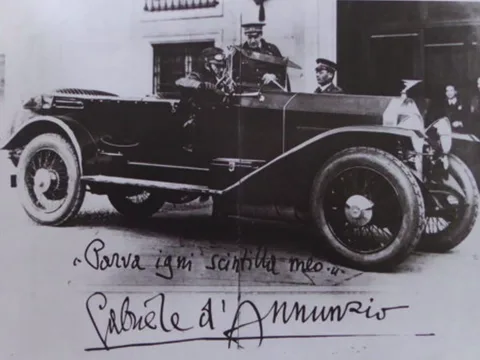 "Parva igni scintilla meo."
Gabriele d'Annunzio